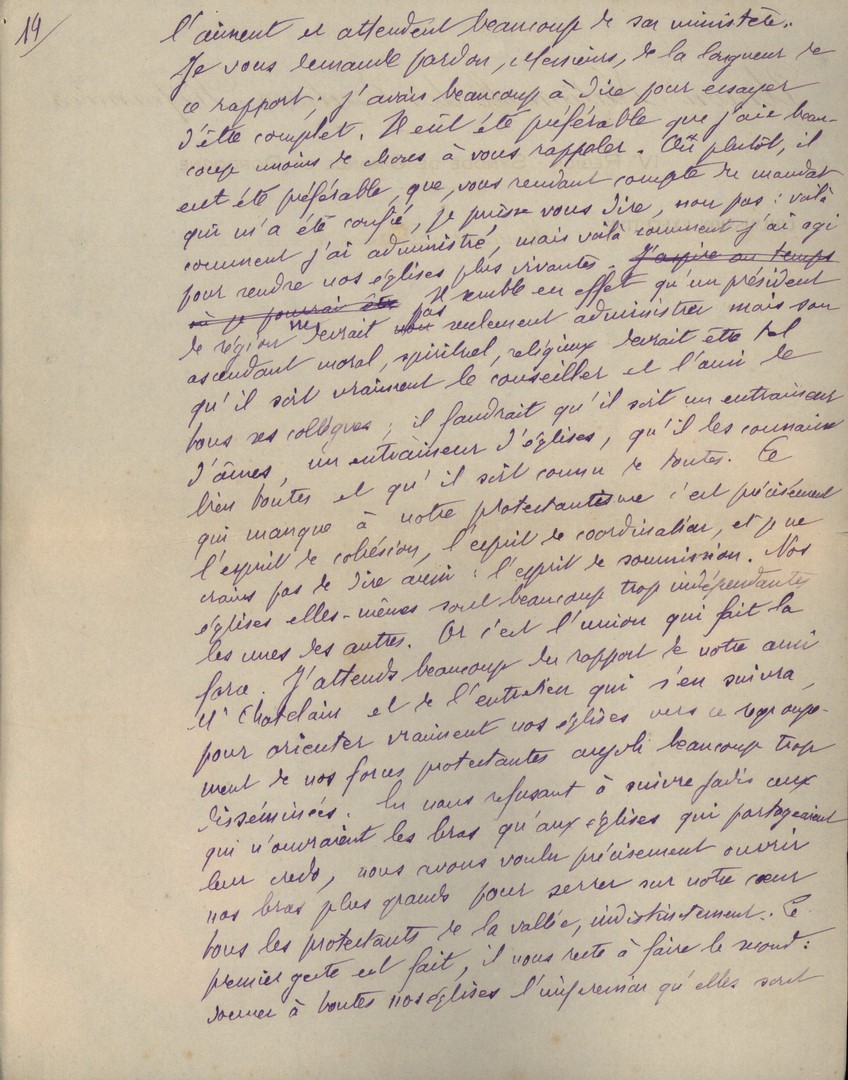 19/
l'aiment et attendent beaucoup de son ministère.
Je vous demande pardon, Messieurs, de la longueur de
ce rapport ; j'avais beaucoup à dire pour essayer
d'être complet. Il eût été préférable que j'aie beau-
coup moins de choses à vous rappeler. Où plutôt, il
eut été préférable, que, vous rendant compte du mandat
qui m'a été confié, je puisse vous dire, non pas : voilà
comment j'ai administré, mais voilà comment j'ai agi
pour rendre nos églises plus vivantes. J'aspire au temps
où je pourrai être Il semble en effet qu'un président
de région ne devrait pas seulement administrer mais son
ascendant moral, spirituel, religieux devrait être tel
qu'il soit vraiment le conseiller et l'ami de
tous ses collègues ; il faudrait qu'il soit un entraineur
d'âmes, un entraineur d'églises, qu'il les connaisse
bien toutes et qu'il soit connu de toutes. Ce
qui manque à notre protestantisme c'est précisément
l'esprit de cohésion, l'esprit de coordination, et je ne
crains pas de dire aussi : l'esprit de soumission. Nos
églises elles-mêmes sont beaucoup trop indépendantes
les unes des autres. Or c'est l'union qui fait la
force. J'attends beaucoup du rapport de notre ami
Mr Chatelain et de l'entretien qui s'en suivra,
pour orienter vraiment nos églises vers ce regroupe-
ment de nos forces protestantes auj. beaucoup trop
disséminées. En nous refusant à suivre jadis ceux
qui n'ouvraient les bras qu'aux églises qui partageaient
leur credo, nous avons voulu précisement ouvrir
nos bras plus grands pour serrer sur notre cœur
tous les protestants de la vallée, indistinctement. Ce
premier geste est fait, il nous reste à faire le second :
donner à toutes nos églises l'impression qu'elles sont